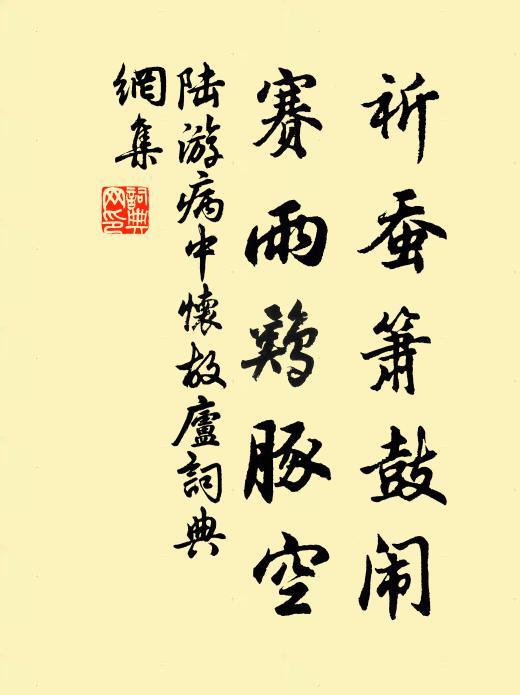 祈蚕箫鼓闹
赛雨鸡豚空
陆游病中怀故庐詞典
網集
詞典
网印